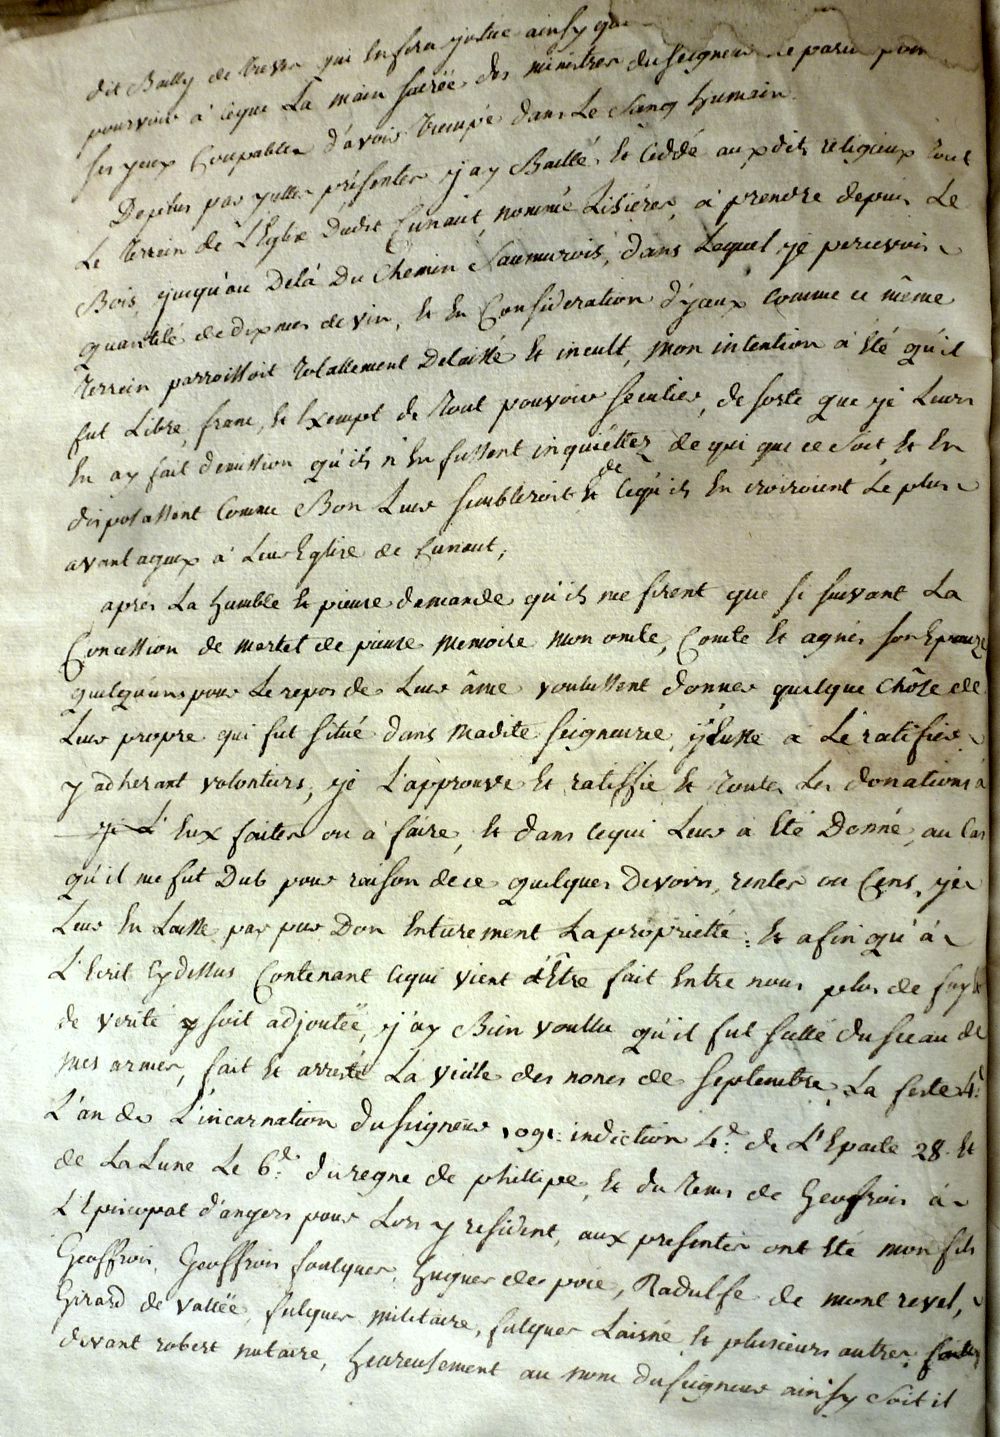 dit Bailly de Treves qui en fera justice ainsy que
pourvoir à ceque La main sacrée des ministres du seigneur ne paru pour
ses yeux Coupables d'avoir trempé dans Le Sang humain.
Deplus par yelles présentes j'ay Baillé et Ceddé auxdits religieux tout
Le terrein de L'Eglise Dudit Cunaut, nommé Lisières, à prendre depuis Le
Bois, jusqu'au Delà Du Chemin Saumurois, dans Lequel je percevois
quantité de dixmes de vin, et En Consideration d'yceux Comme ce même
terrein parroissoit totallement Delaissé et incult, mon intention à Eté qu'il
fut Libre, franc, et Exempt de tout pouvoir seculier, de sorte que je Leurs
En ay fait demission qu'ils n'En fussent inquiettez de qui que ce soit, et En
disposassent Comme Bon Leur sembleroit et de Cequ'ils En croiroient Le plus
avantageux à Leur Eglise de Cunaut,
apres La humble et pieuse demande qu'ils me firent que si suivant La
Concession de martel de pieuse memoire mon oncle, Comte et agnés son Epouze
quelqu'uns pour Le repos de Leur âme voulussent donner quelque Chôse de
Leur propre qui fut situé dans madite seigneurie, j'Eusse a Le ratifier
y adherant volontiers, je L'approuve et ratiffie et toutes Les donations à
je L' Eux faites ou à faire, et dans cequi Leur à Eté Donné, au Cas
qu'il me fut Dub pour raison de ce quelques Devoirs, rentes ou Cens, je
Leur En Laisse par pur Don Entierement La proprietté: et afin qu'à
L'Ecrit Cydessus Contenant Cequi vient d'Être fait Entre nous plus de foy et
de verité y soit adjoutée, j'ay Bien voullu qu'il fut scellé du sceau de
mes armes, fait et arresté La vieille des nones de septembre, La ferie 4e
L'an de L'incarnation du seigneur 1091: indiction 4e de L'Epacte 28 et
de La Lune Le 6e du regne de phillipe, et du tems de Geoffrois à
L'Episcopat d'angers pour Lors y resident, aux presentes ont Eté mon fils
Geoffrois, Geoffrois foulques, hugues des poie, Radulfe de mont revel,
Girard de vallée, fulques militaire, fulques Laisné et plusieurs autres faites
devant robert notaire, heureusement au nom du seigneur ainsy soit il